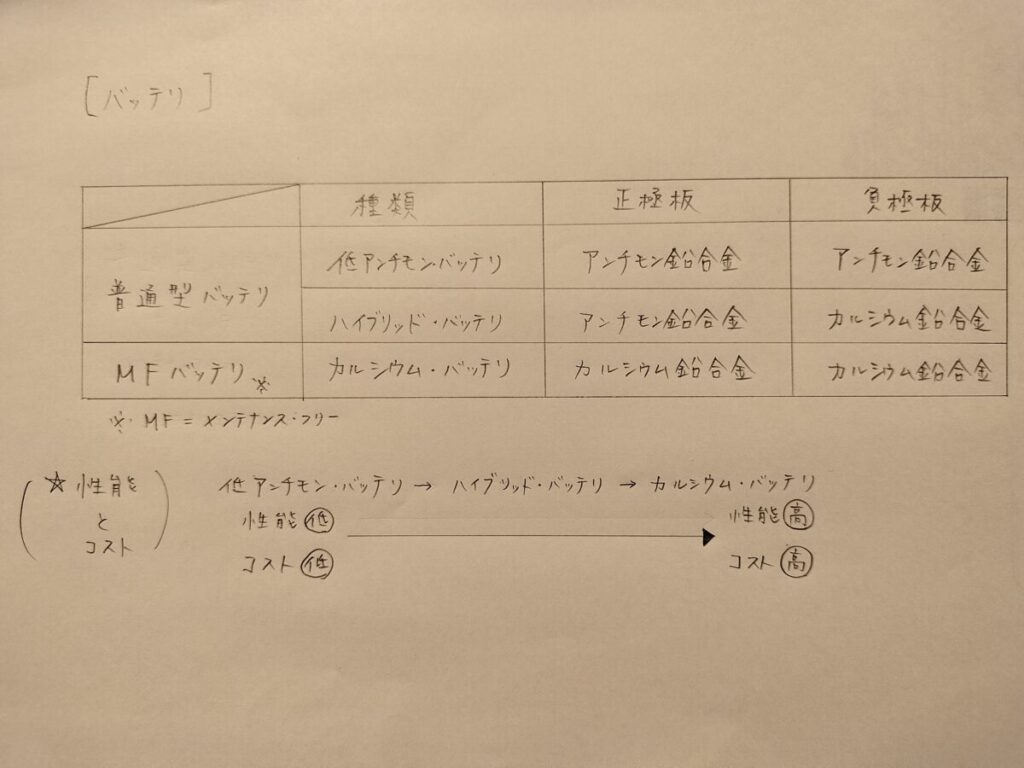 [バッテリ]
種類 正極板 負極板
普通型バッテリ 低アンチモン・バッテリ アンチモン鉛合金 アンチモン鉛合金
ハイブリッド・バッテリ アンチモン鉛合金 カルシウム鉛合金
MFバッテリ※ カルシウム・バッテリ カルシウム鉛合金 カルシウム鉛合金
※ MF=メンテナンス・フリー
(☆性能
と
コスト)
低アンチモン・バッテリ → ハイブリッド・バッテリ → カルシウム・バッテリ
性能 低 性能 高
コスト 低 コスト 高